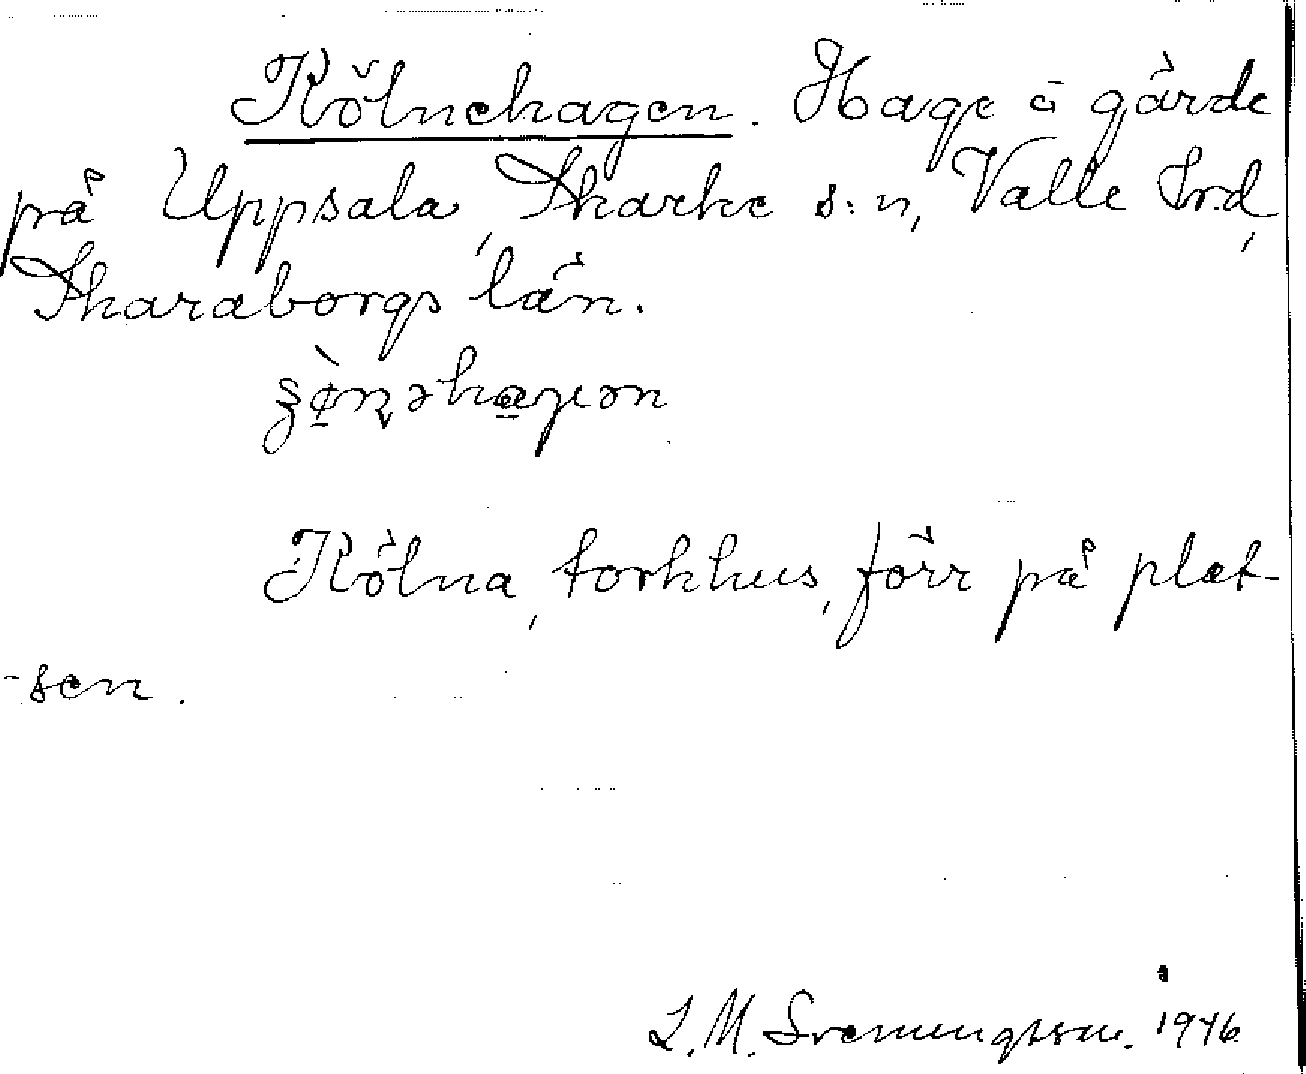 Kölnehagen. Hage å gärde
på Uppsala, Skarke s:n, Valle hrd,
Skaraborgs län.
Kölna, torkhus, förr på plat-
-sen.
L. M. Svenungsson. 1946.